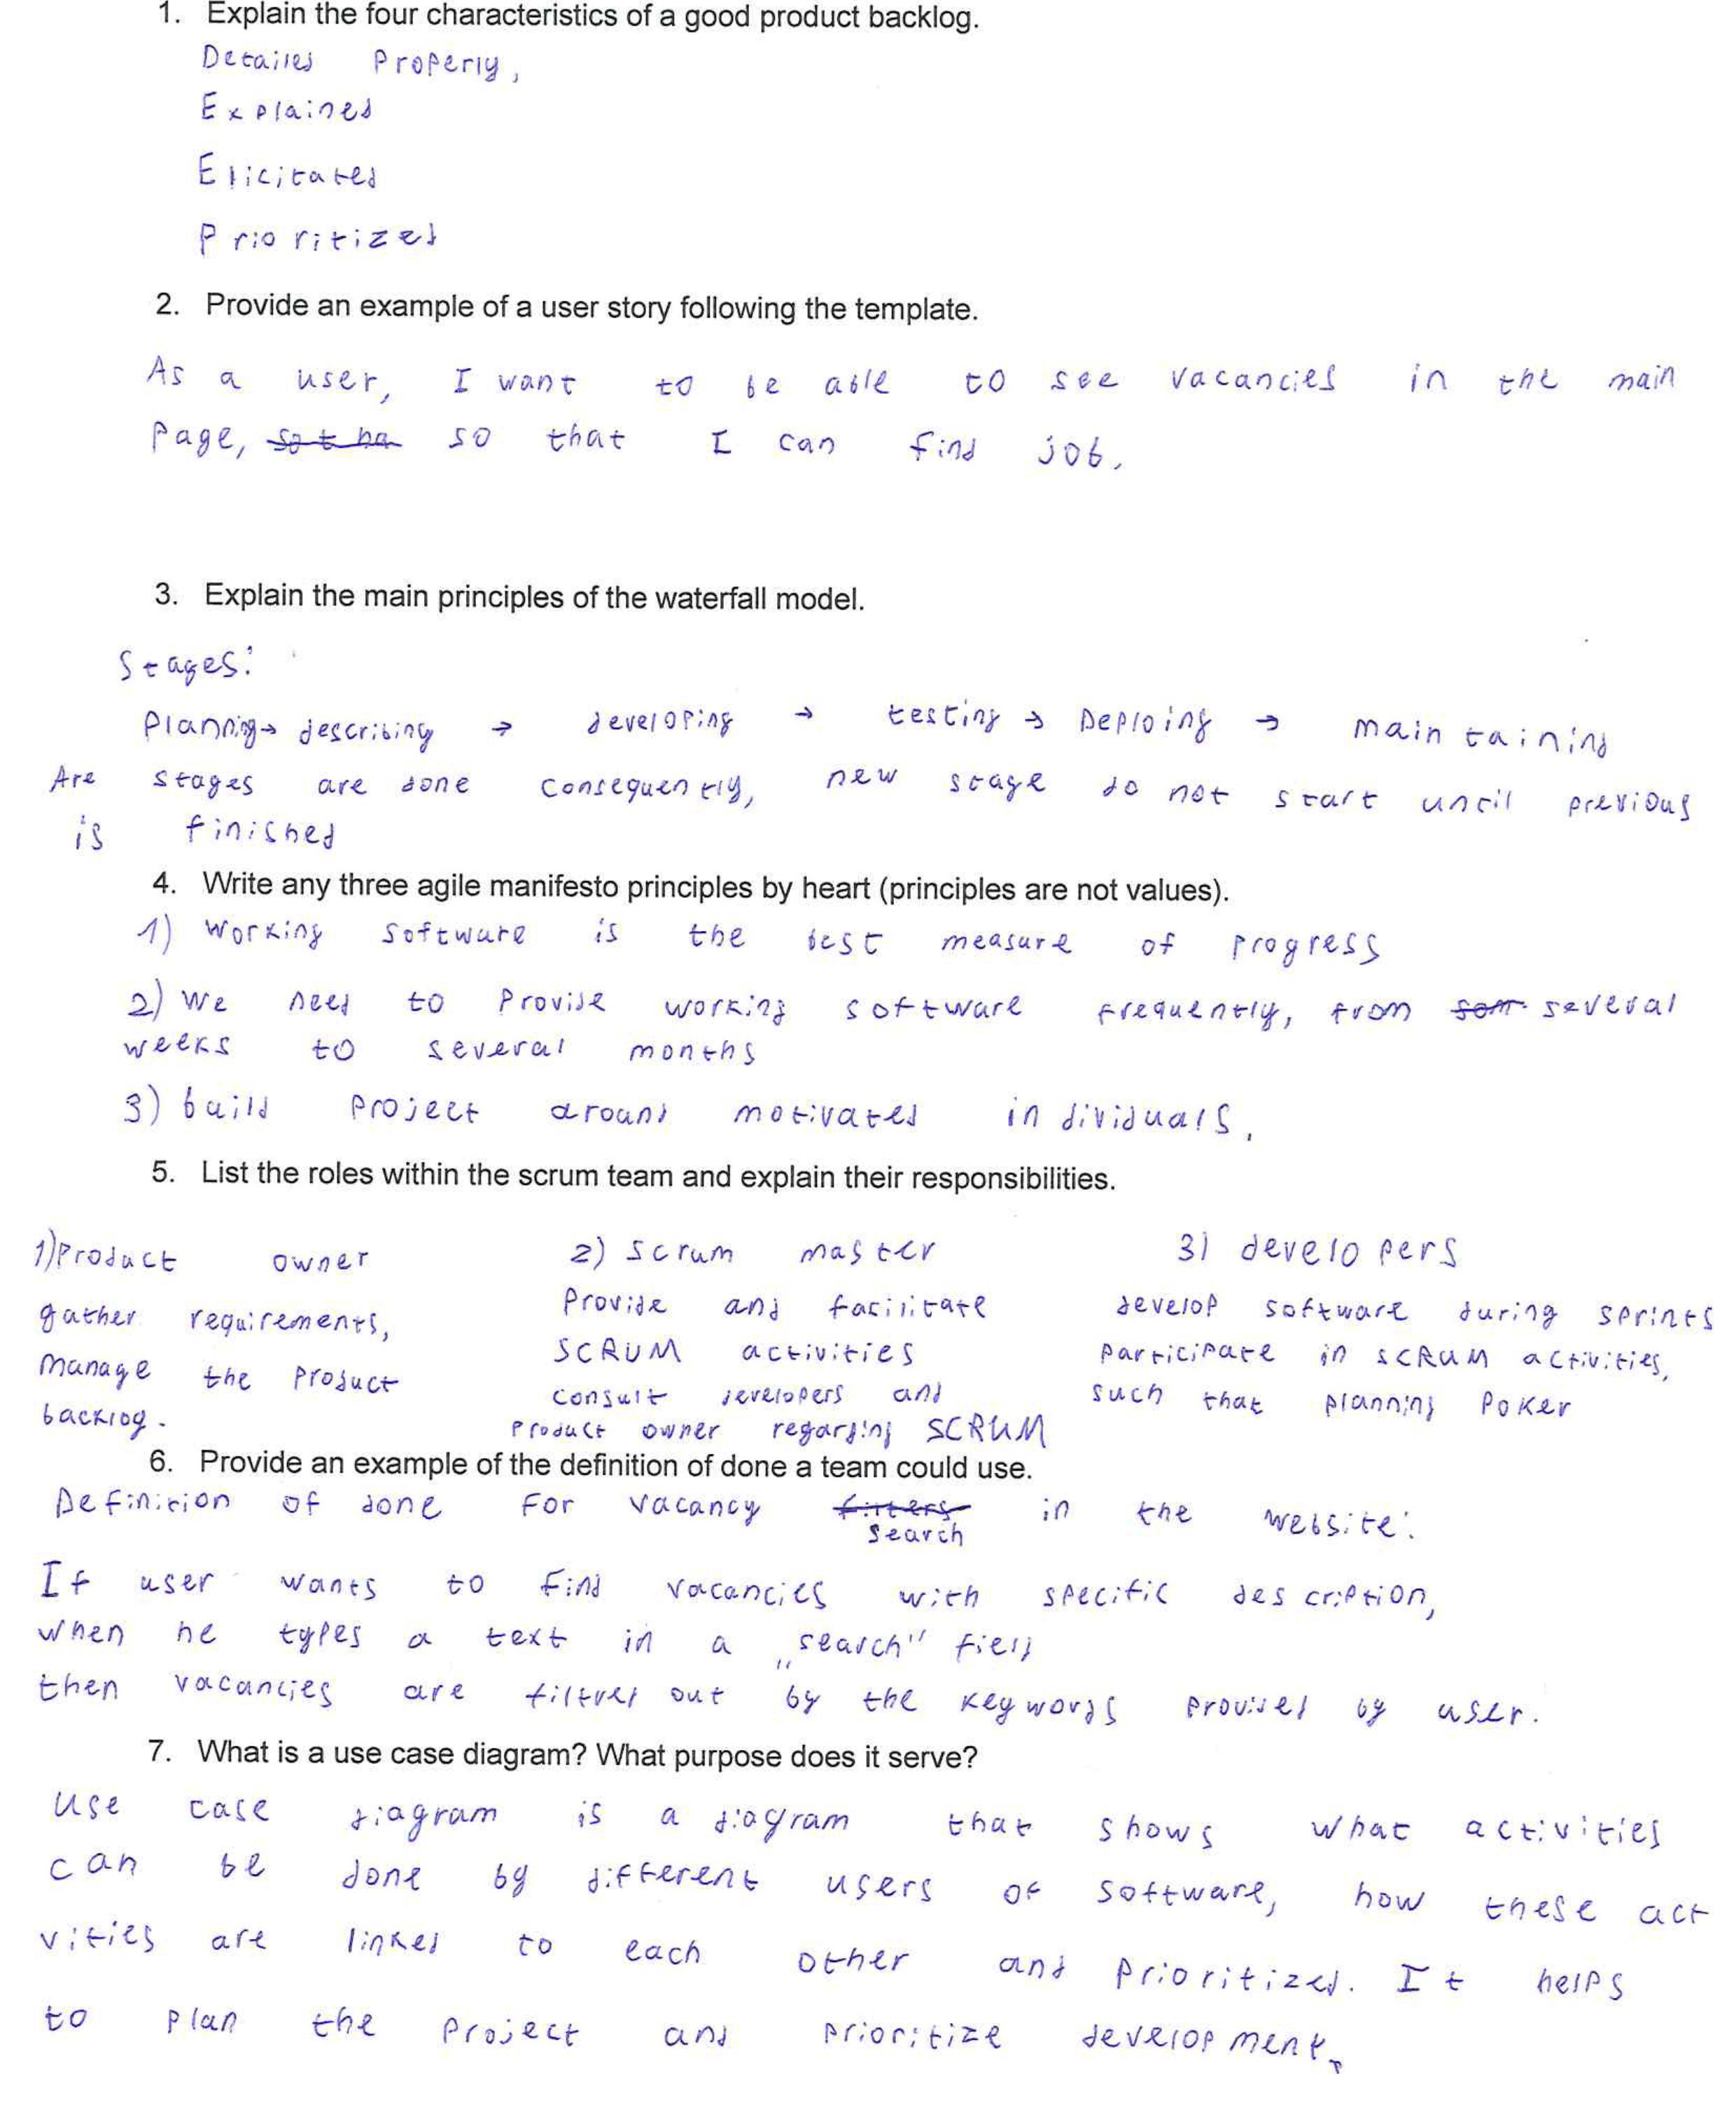 1. Explain the four characteristics of a good product backlog.
Detailed Properly,
Explained
Elicitated
Prioritized
2. Provide an example of a user story following the template.
As a user, I want to be able to see vacancies in the main
Page, so that I can find job.
3. Explain the main principles of the waterfall model.
Stages:
Planning → describing → developing → testing → Deploing → maintaining
Are stages are done consequently, new stage do not start until previous
is finished
4. Write any three agile manifesto principles by heart (principles are not values).
1) Working software is the best measure of progress
2) We need to provide working software frequently, from several
weeks to several months
3) build project around motivated individuals.
5. List the roles within the scrum team and explain their responsibilities.
1) Product owner
gather requirements,
manage the product
backlog.
2) Scrum master
Provide and facilitate
SCRUM activities
consult developers and
product owner regarding SCRUM
3) developers
develop software during sprints
participate in SCRUM activities,
such that planning poker
6. Provide an example of the definition of done a team could use.
Definition of done for vacancy filters in the website:
search
If user wants to find vacancies with specific description,
when he types a text in a „search" field
then vacancies are filtred out by the keywords provided by user.
7. What is a use case diagram? What purpose does it serve?
Use case diagram is a diagram that shows what activities
can be done by different users of software, how these act
vities are linked to each other and prioritized. It helps
to plan the project and prioritize development.